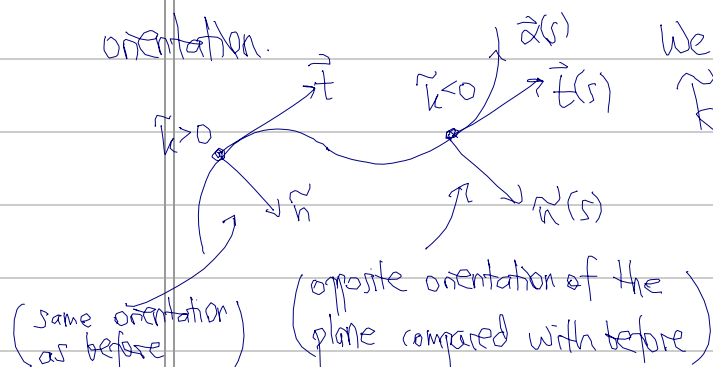 orientation.
We
α⃗(s)
t⃗
k̃<0
t⃗(s)
k̃
k̃>0
ñ
ñ(s)
(same orientation
as before)
(opposite orientation of the
plane compared with before)